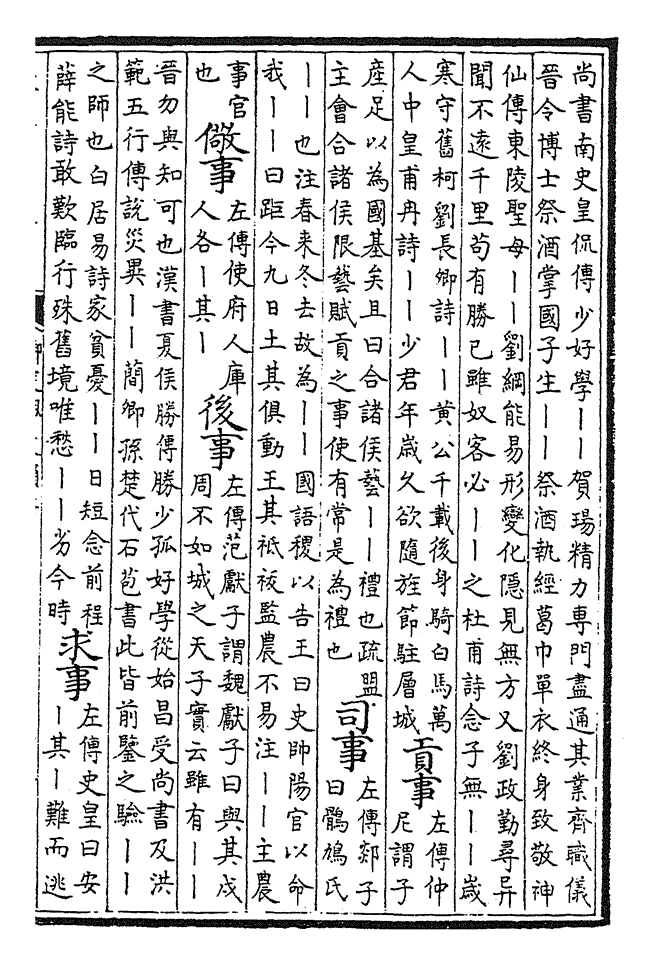 尚書南史皇侃傳少好學丨丨賀瑒精力專門盡通其業齊職儀
晉令博士祭酒掌國子生丨丨祭酒執經葛巾單衣終身致敬神
仙傳東陵聖母丨丨劉綱能易形變化隱見無方又劉政勤尋异
聞不遠千里苟有勝已雖奴客必丨丨之杜甫詩念子無丨丨歲
寒守舊柯劉長卿詩丨丨黃公千載後身騎白馬萬
人中皇甫冉詩丨丨少君年歲久欲隨旌節駐層城
貢事
左傳仲
尼謂子
產足以為國基矣且曰合諸侯藝丨丨禮也疏盟
主會合諸侯限藝賦貢之事使有常是為禮也
司事
左傳郯子
曰鶻鳩氏
丨丨也注春来冬去故為丨丨國語稷以告王曰史帥陽官以命
我丨丨曰距今九日土其俱動王其祗祓監農不易注丨丨主農
事官
也
儆事
左傳使府人庫
人各丨其丨
後事
左傳范獻子謂魏獻子曰與其戍
周不如城之天子實云雖有丨丨
晉勿與知可也漢書夏侯勝傳勝少孤好學從始昌受尚書及洪
範五行傳說災異丨丨蕳卿孫楚代石苞書此皆前鑒之驗丨丨
之師也白居易詩家貧憂丨丨日短念前程
薛能詩敢歎臨行殊舊境唯愁丨丨劣今時
求事
左傳史皇曰安
丨其丨難而逃